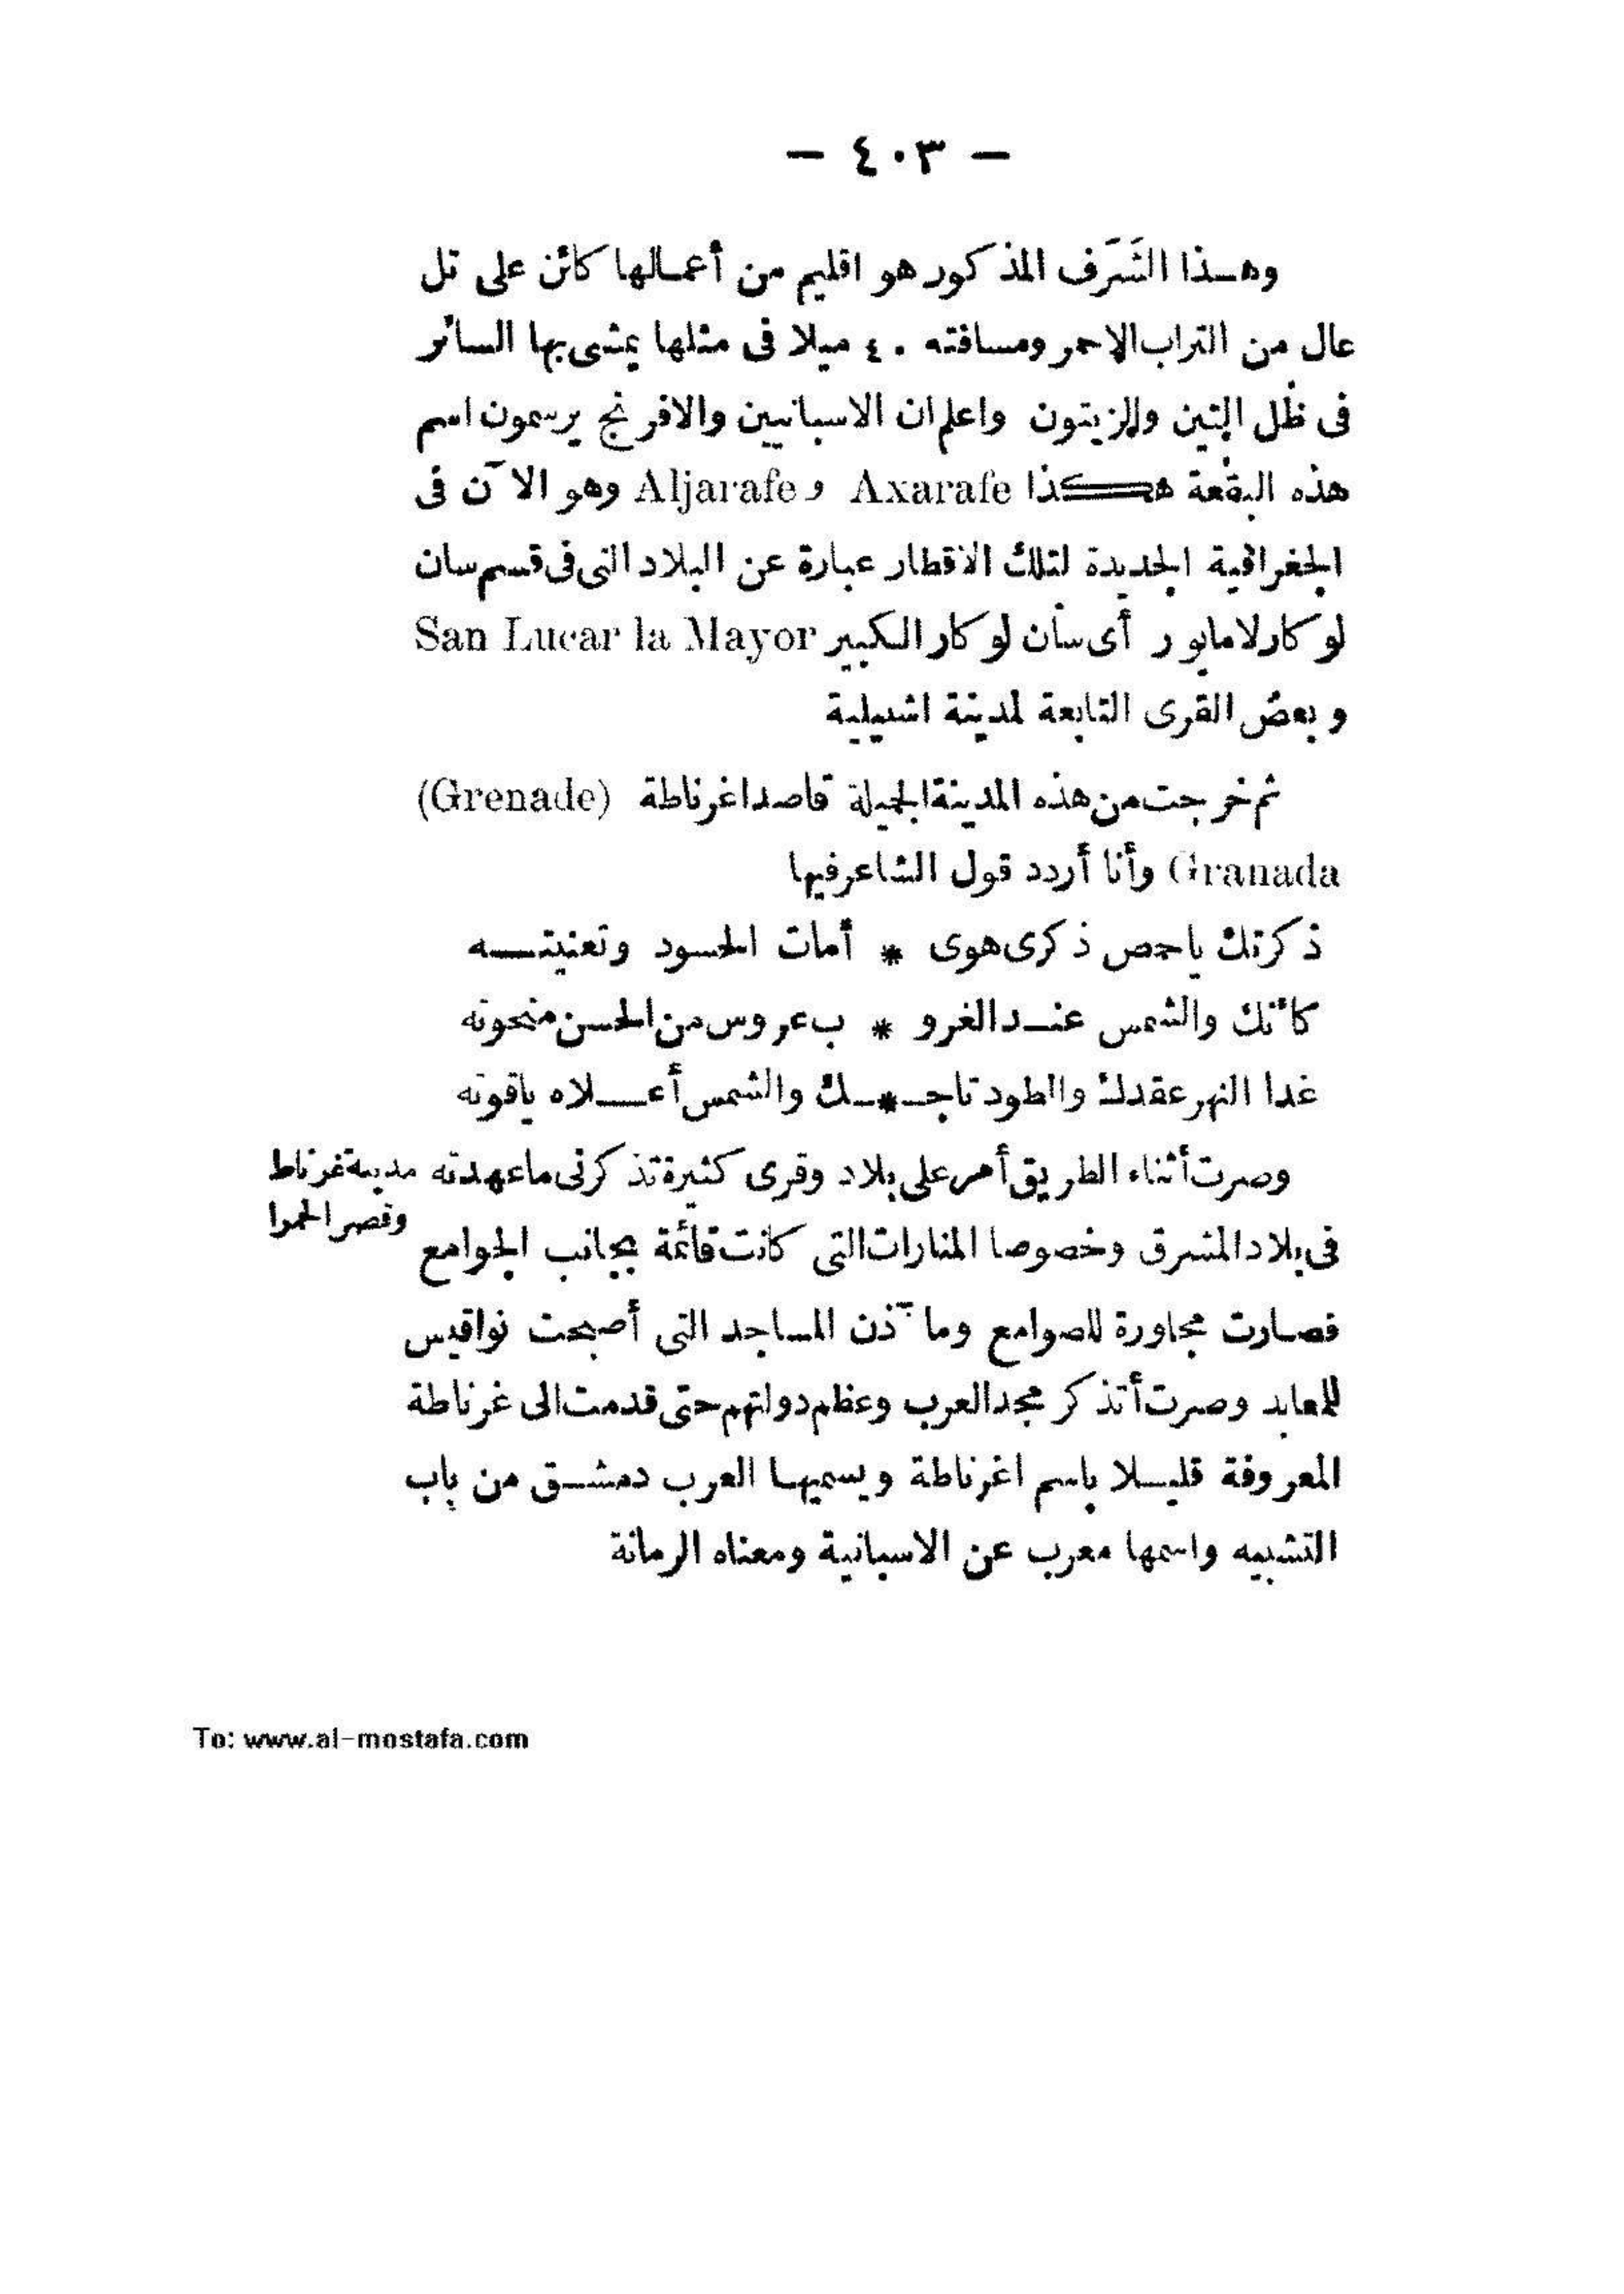 — ٤٠٣ —
وهـذا الشَرَف المذكور هو اقليم من أعمـالها كائن على تل
عال من التراب الاحمر ومسافته ٤٠ ميلا فى مثلها يمشى بها السائر
فى ظل التين والزيتون واعلم ان الاسبانيين والافرنج يرسمون اسم
هذه البقعة هكذا Axarafe و Aljarafe وهو الآن فى
الجغرافية الجديدة لتلك الاقطار عبارة عن البلاد التى فى قسم سان
لوكار لامايور أى سان لوكار الكبير San Lucar la Mayor
وبعض القرى التابعة لمدينة اشبيلية
ثم خرجت من هذه المدينة الجميلة قاصدا غرناطة (Grenade)
Granada وأنا أردد قول الشاعر فيها
ذكرتك ياحمص ذكرى هوى * أمات الحسود وتعنيتـــه
كأنك والشمس عنــد الغرو * ب عروس من الحسن منحوته
غدا النهر عقدك والطود تاجـ*ـك والشمس أعــلاه ياقوته
وصرت أثناء الطريق أمر على بلاد وقرى كثيرة تذكرنى ماعهدته
مدينة غرناط
وقصر الحمرا
فى بلاد المشرق وخصوصا المنارات التى كانت قائمة بجانب الجوامع
فصـارت مجاورة للصوامع ومآذن المساجد التى أصبحت نواقيس
للمعابد وصرت أتذكر مجد العرب وعظم دولتهم حتى قدمت الى غرناطة
المعروفة قليــلا باسم اغرناطة ويسميهـا العرب دمشــق من باب
التشبيه واسمها معرب عن الاسبانية ومعناه الرمانة
To: www.al-mostafa.com